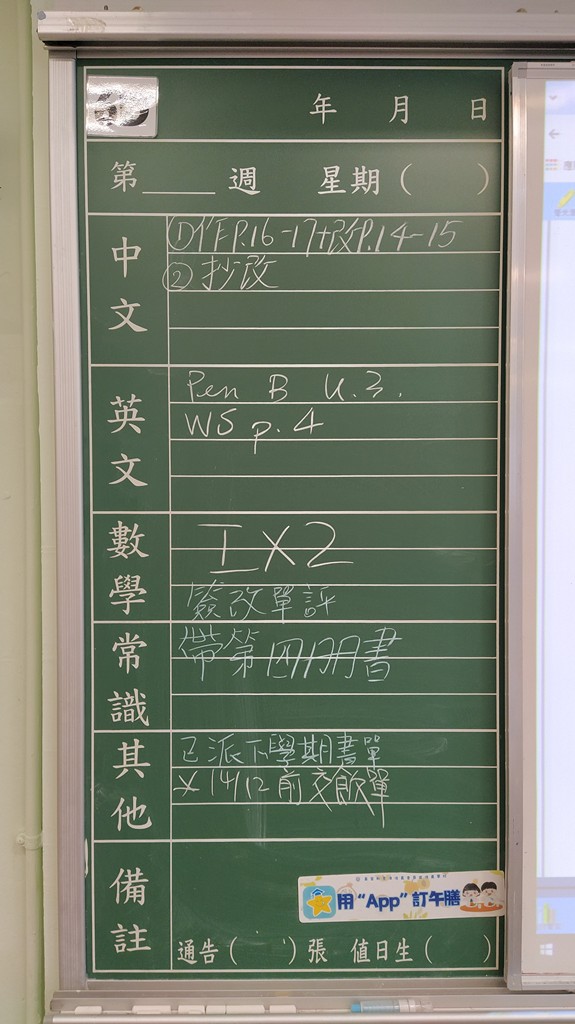 年 月 日
第____週 星期( )
中文
①作P.16-17+改P.14-15
②抄改
英文
Pen B U.3.
WS p.4
數學
工X2
簽改單評
常識
帶第四冊書
其他
已派下學期書單
※14/12前交飯單
備註
用“App”訂午膳
通告( )張 值日生( )